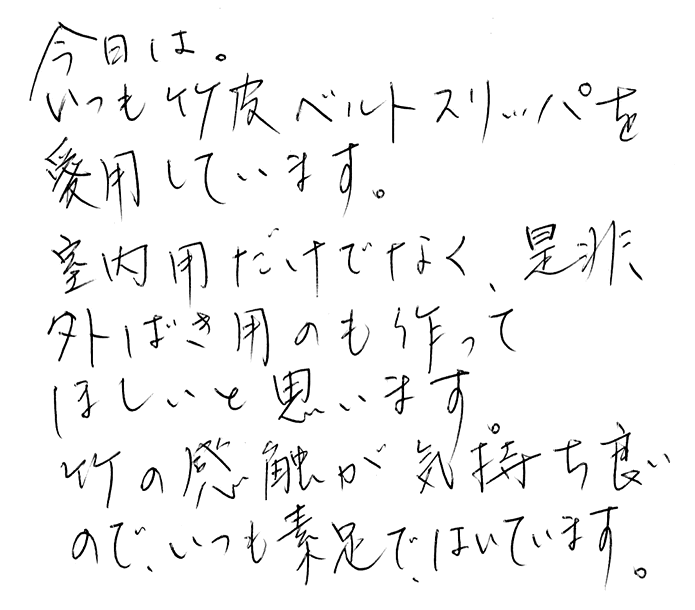 今日は。
いつも竹皮ベルトスリッパを
愛用しています。
室内用だけでなく、是非、
外ばき用のも作って
ほしいと思います。
竹の感触が気持ち良い
ので、いつも素足で、はいています。